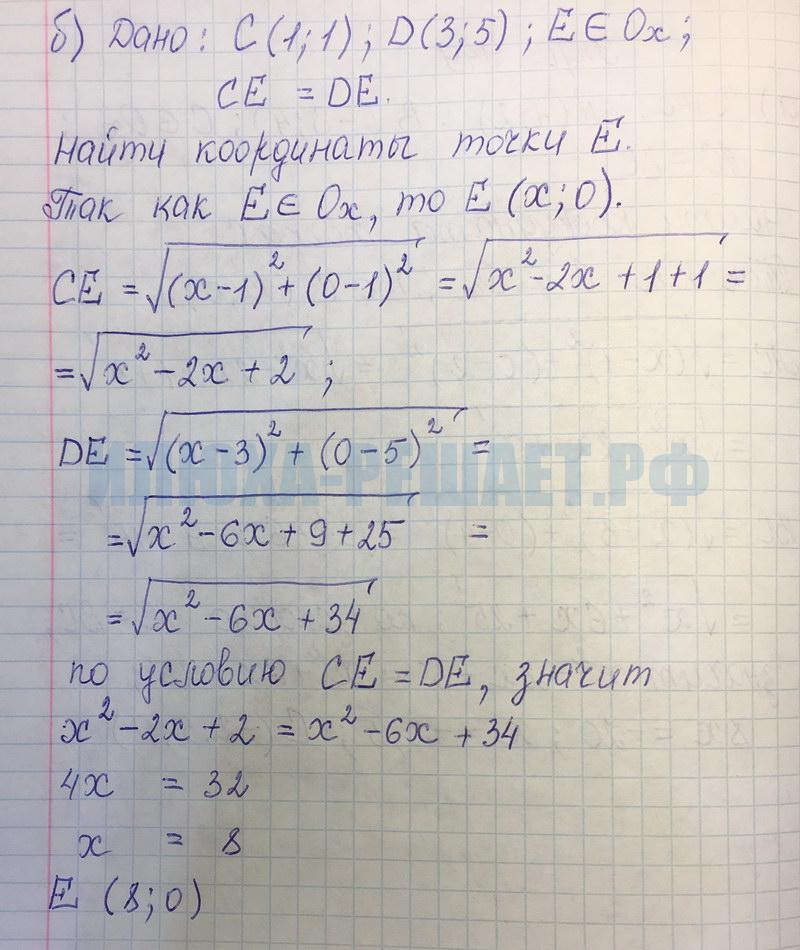 б) Дано: C(1;1); D(3;5); E∈Ox;
CE = DE.
Найти координаты точки E.
Так как E∈Ox, то E(x;0).
CE = √((x-1)²+(0-1)²) = √(x²-2x+1+1) =
= √(x²-2x+2);
DE = √((x-3)²+(0-5)²) =
ИЛЮХА-РЕШАЕТ.РФ
= √(x²-6x+9+25) =
= √(x²-6x+34)
по условию CE = DE, значит
x²-2x+2 = x²-6x+34
4x = 32
x = 8
E (8;0)